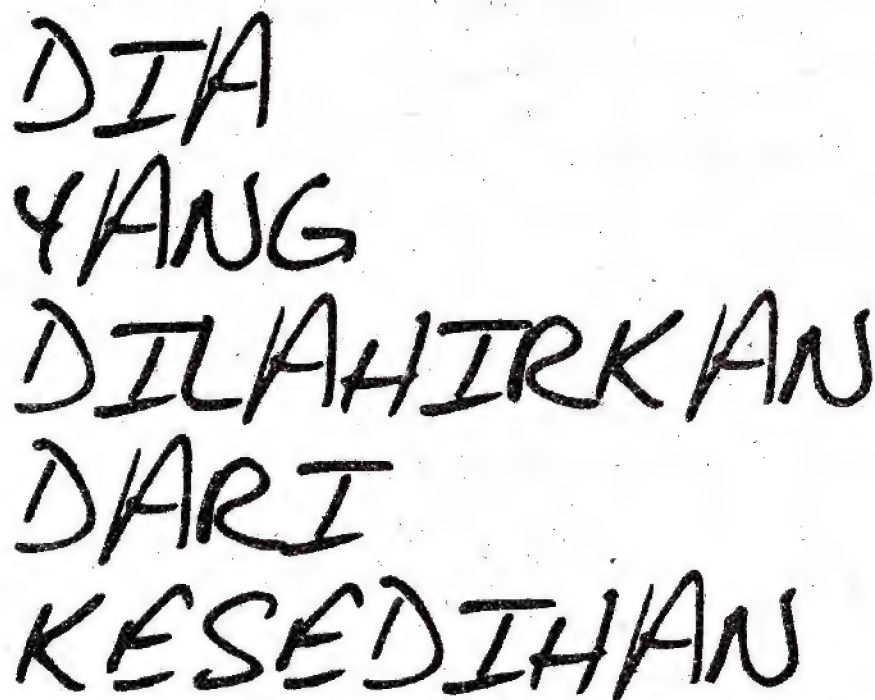 DIA
YANG
DILAHIRKAN
DARI
KESEDIHAN